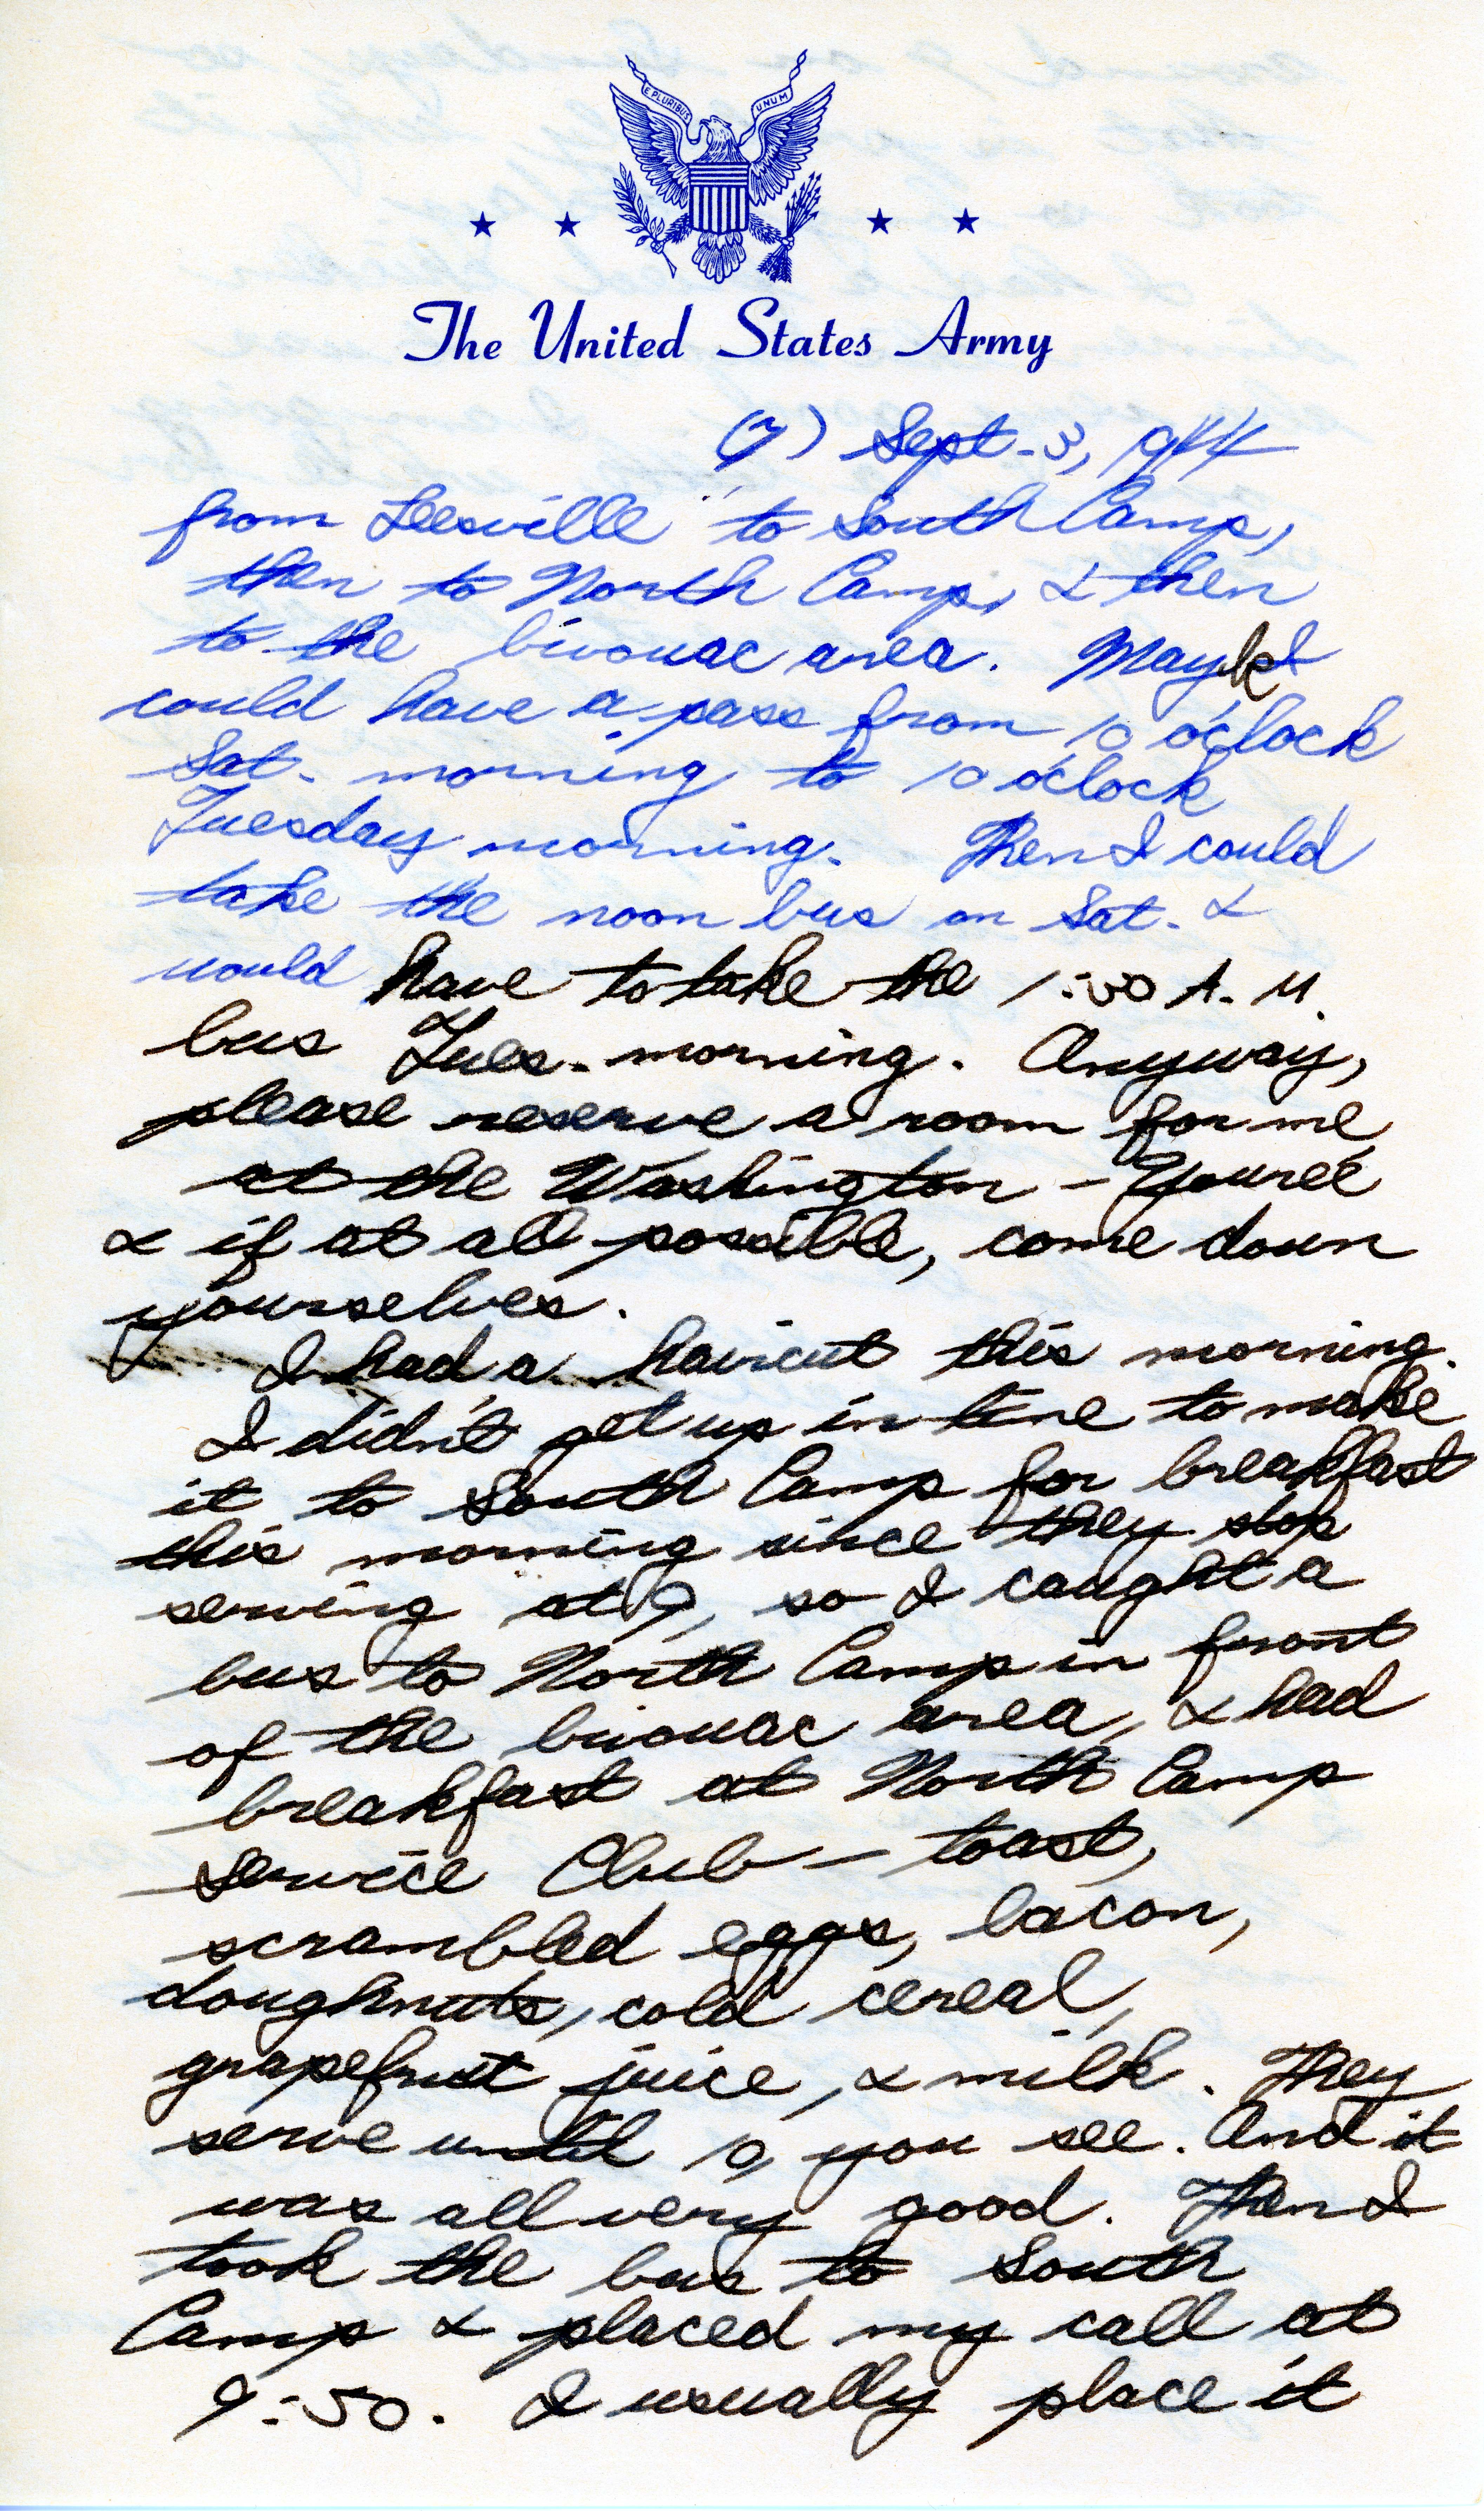 E PLURIBUS UNUM
The United States Army
(7) Sept. 3, 1944
from Leesville to South Camp,
then to North Camp, & then
to the bivouac area. Maybe I
could have a pass from 10 o'clock
Sat. morning to 10 o'clock
Tuesday morning. Then I could
take the noon bus on Sat. &
would have to take the 1:00 A.M.
bus Tues. morning. Anyway,
please reserve a room for me
at the Washington - Youree
& if at all possible, come down
yourselves.
I had a haircut this morning.
I didn't get up in time to make
it to South Camp for breakfast
this morning since they stop
serving at 9, so I caught a
bus to North Camp in front
of the bivouac area, & had
breakfast at North Camp
Service Club - toast,
scrambled eggs, bacon,
doughnuts, cold cereal,
grapefruit juice, & milk. They
serve until 10, you see. And it
was all very good. Then I
took the bus to South
Camp & placed my call at
9:50. I usually place it